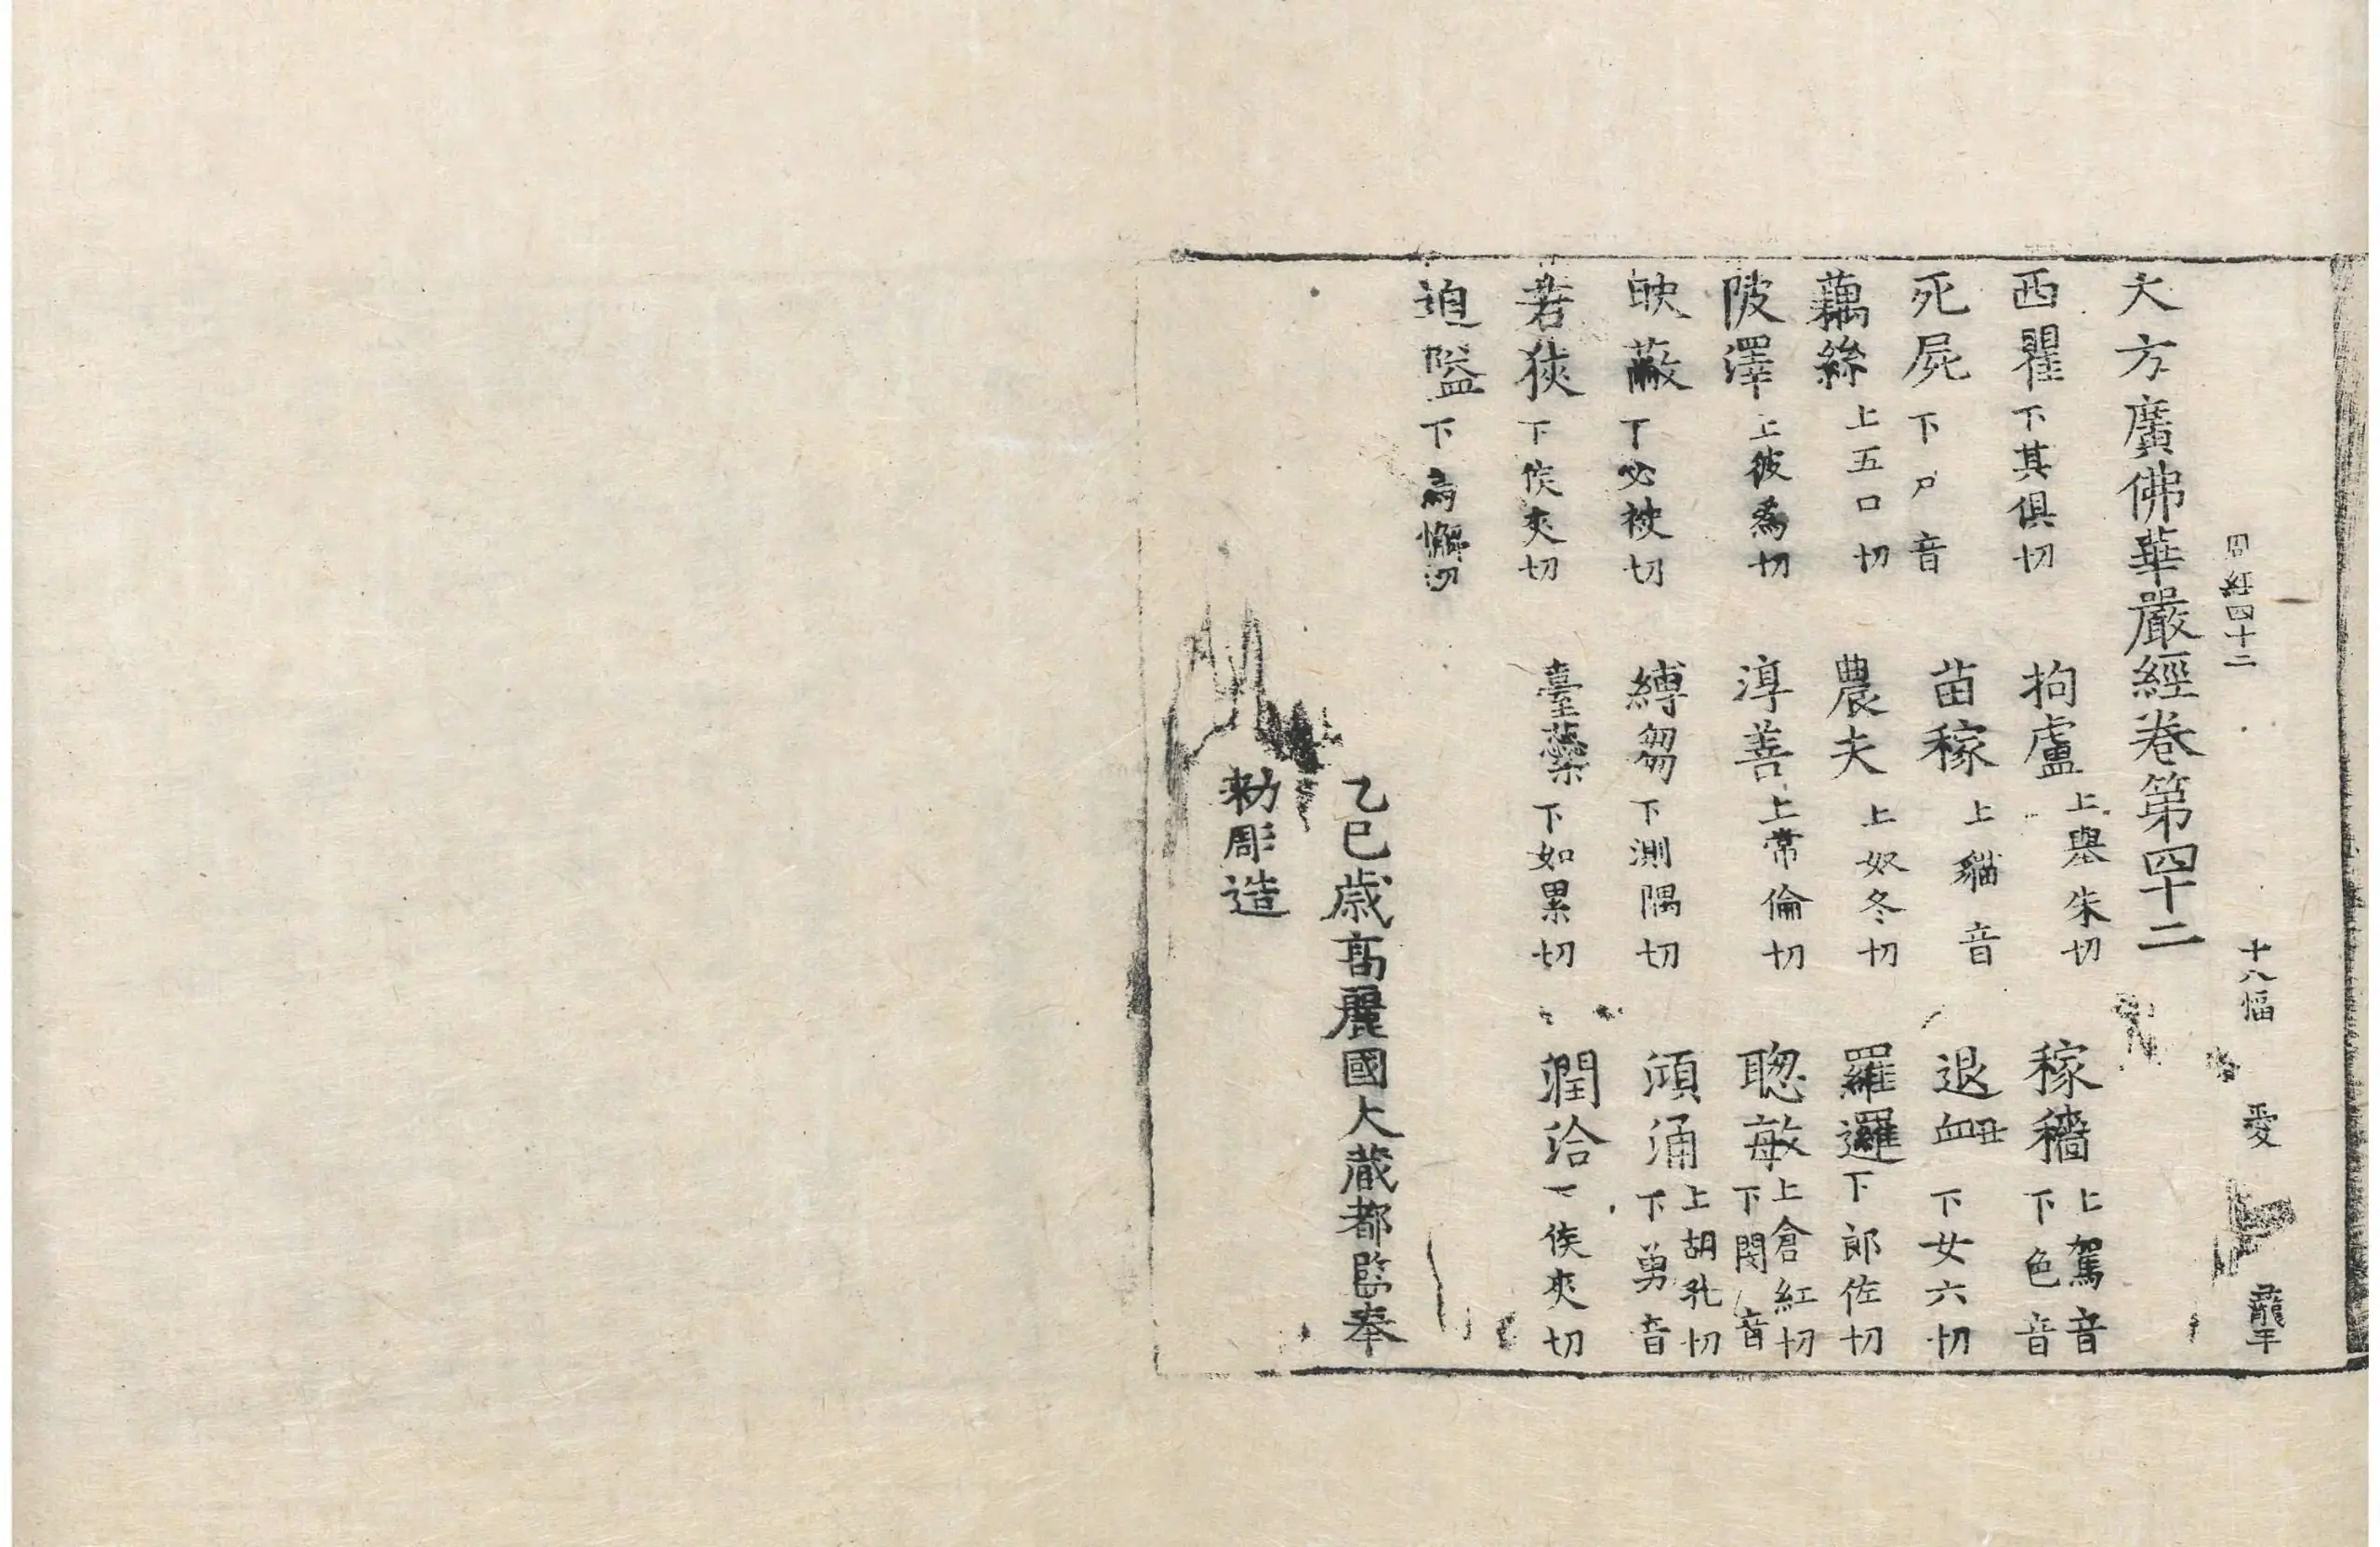 周經四十二 十八幅 愛
大方廣佛華嚴經卷第四十二
西瞿下其俱切 拘盧上舉朱切 稼穡上駕音下色音
死屍下尸音 苗稼上貓音 退衄下女六切
藕絲上五口切 農夫上奴冬切 羅邏下郎佐切
陂澤上彼爲切 淳善上常倫切 聦敏上倉紅切下閔音
映蔽下必袂切 縛芻下測隅切 澒涌上胡孔切下勇音
若狹下侯夾切 臺蘂下如累切 潤洽下侯夾切
迫隘下烏懈切
乙巳歲高麗國大藏都監奉
勑彫造